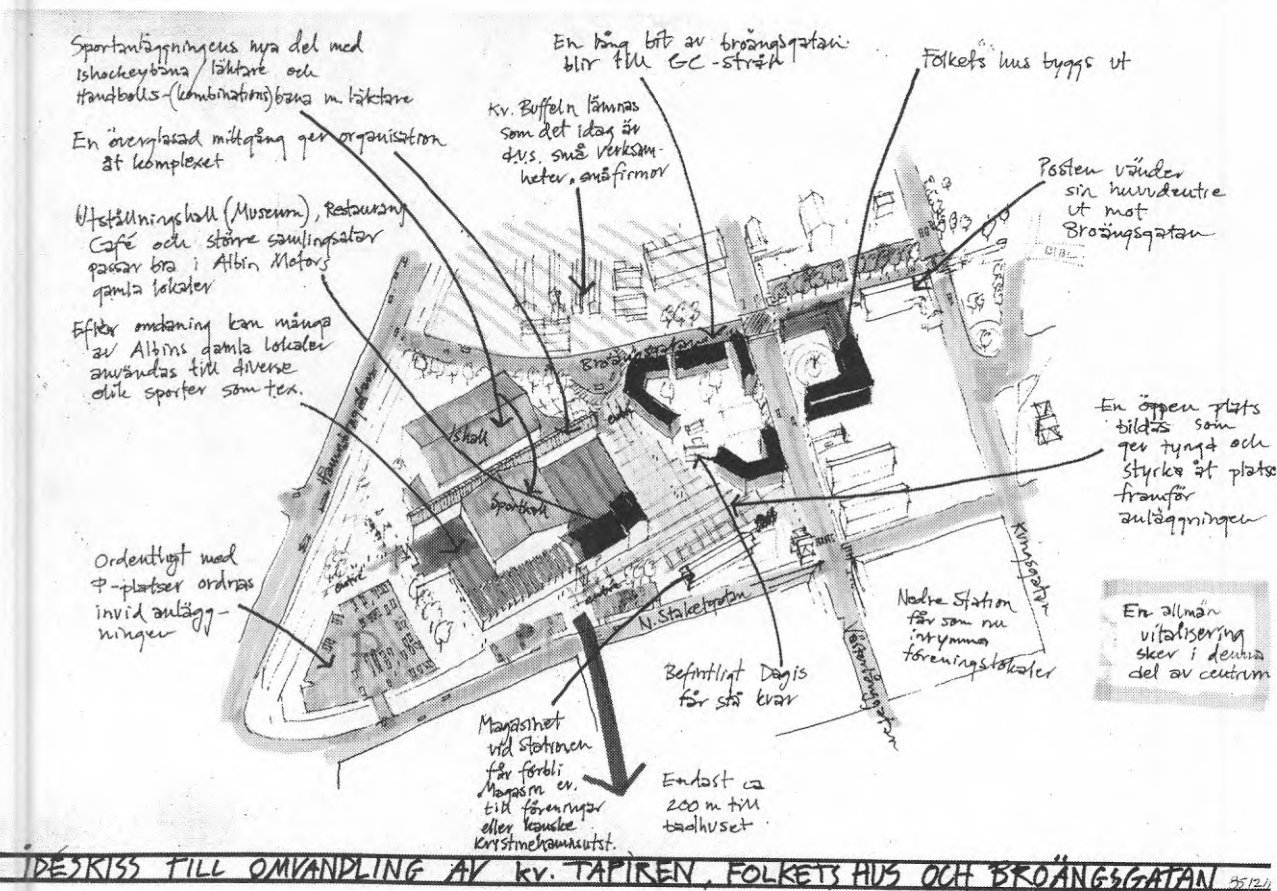 Sportanläggningens nya del med
Ishockeybana/läktare och
Handbolls-(kombinations)bana m. läktare
En överglasad mittgång ger organisation
åt komplexet
Utställningshall (Museum), Restaurang
Café och större samlingsalar
passar bra i Albin Motors
gamla lokaler
Efter omdaning kan många
av Albins gamla lokaler
användas till diverse
olik sporter som tex.
Ordentligt med
P-platser ordnas
invid anlägg-
ningen
En lång bit av broängsgatan
blir till GC-stråk
Kv. Buffeln lämnas
som det idag är
dvs. små verksam-
heter, småfirmor
Folkets hus byggs ut
Posten vänder
sin huvudentre
ut mot
Broängsgatan
En öppen plats
bildas som
ger tyngd och
styrka åt platse
framför
anläggningen
En allmän
vitalisering
sker i denna
del av centrum
Nedre Station
får som nu
inrymma
föreningslokaler
Befintligt Dagis
får stå kvar
Magasinet
vid Stationen
får förbli
Magasin ev.
till föreningar
eller kanske
Kristinehamnsutst.
Endast ca
200 m till
badhuset
Broängsgatan
Ishall
Sporthall
entré
entré
entré
P
N. Staketgatan
Västerlånggatan
Kungsgatan
IDÉSKISS TILL OMVANDLING AV kv. TAPIREN, FOLKETS HUS OCH BROÄNGSGATAN